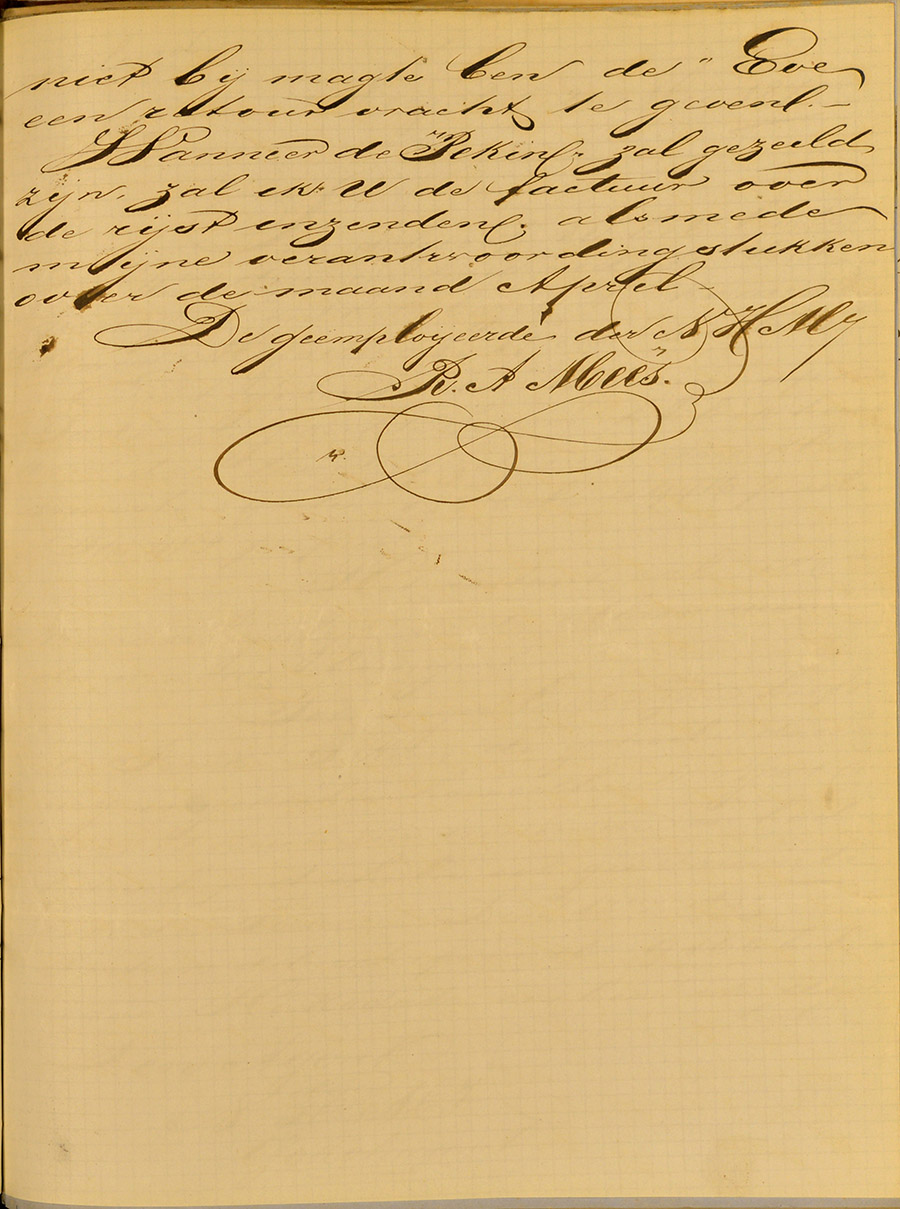 niet bij magte ben de "Eve
een retour vracht te geven. –
Wanneer de "Pekin" zal gezeild
zijn, zal ik U de factuur over
de rijst inzenden, alsmede
mijne verantwoordingstukken
over de maand April –
De geemployeerde der N H My
R. A Mees.